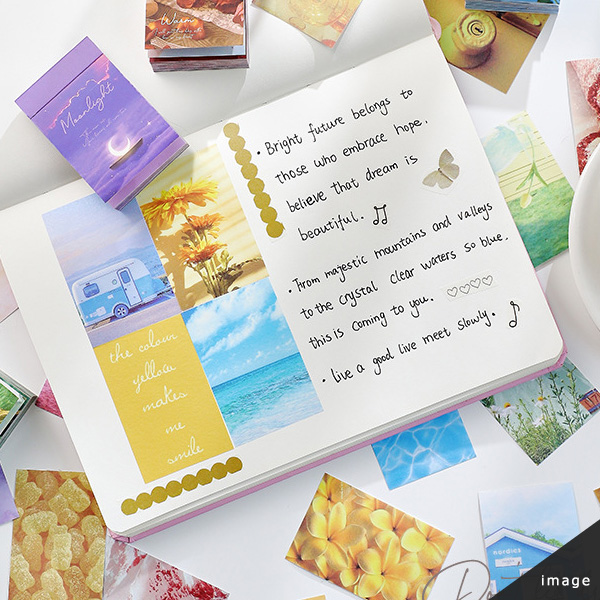 Warm
Moonlight
• Bright future belongs to
those who embrace hope,
believe that dream is
beautiful.
• From majestic mountains and valleys
to the crystal clear waters so blue,
this is coming to you.
• live a good live meet slowly.
the colour
yellow
makes
me
smile
nordics
image